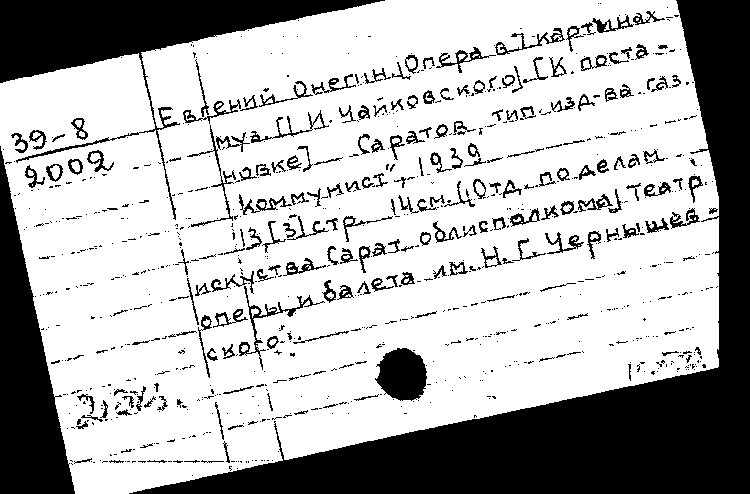 39-8
2002
Евгений Онегин. [Опера в 7 картинах
муз. П. И. Чайковского]. [К поста-
новке] Саратов, тип. изд-ва газ.
"Коммунист", 1939
13,[3] стр. 14см. (Отд. по делам
искуства Сарат. облисполкома) Театр
оперы и балета им. Н. Г. Чернышев-
ского.